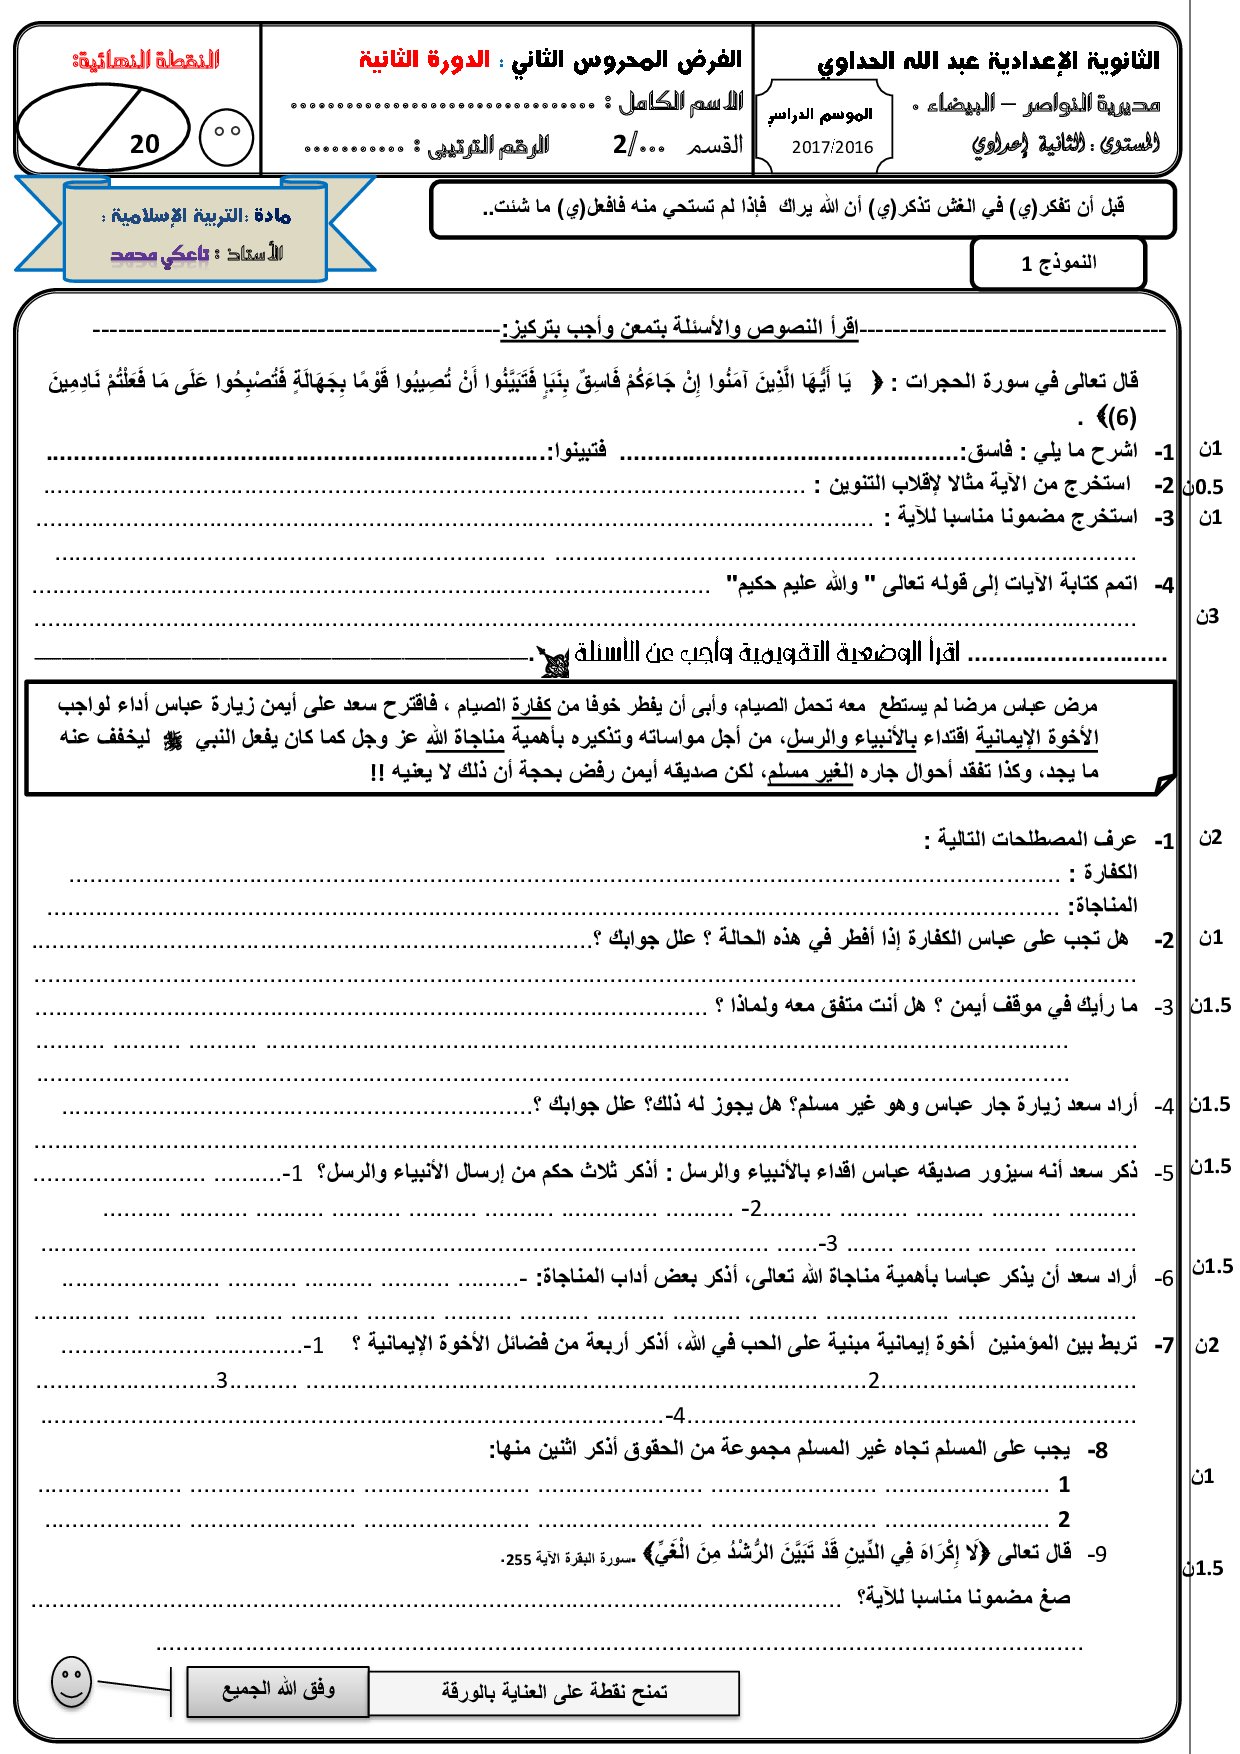 الثانوية الإعدادية عبد الله الحداوي
مديرية النواصر – البيضاء .
المستوى : الثانية إعدادي
الموسم الدراسي
2017/2016
الفرض المحروس الثاني : الدورة الثانية
الاسم الكامل : .................................
القسم .../2 الرقم الترتيبي : ...........
النقطة النهائية:
20
مادة :التربية الإسلامية :
الأستاذ : تاعكي محمد
قبل أن تفكر(ي) في الغش تذكر(ي) أن الله يراك فإذا لم تستحي منه فافعل(ي) ما شئت..
النموذج 1
------------------------------------اقرأ النصوص والأسئلة بتمعن وأجب بتركيز:------------------------------------------------
قال تعالى في سورة الحجرات : ﴿ يَا أَيُّهَا الَّذِينَ آمَنُوا إِنْ جَاءَكُمْ فَاسِقٌ بِنَبَإٍ فَتَبَيَّنُوا أَنْ تُصِيبُوا قَوْمًا بِجَهَالَةٍ فَتُصْبِحُوا عَلَى مَا فَعَلْتُمْ نَادِمِينَ
(6)﴾ .
1- اشرح ما يلي : فاسق:.................................................. فتبينوا:......................................................................... 1ن
2- استخرج من الآية مثالا لإقلاب التنوين : ............................................................................................................... 0.5ن
3- استخرج مضمونا مناسبا للآية : .......................................................................................................................... 1ن
..................................................................................... .......................................................................
4- اتمم كتابة الآيات إلى قوله تعالى " والله عليم حكيم" ...................................................................................................
................................................................................................................................................................ 3ن
............................ اقرأ الوضعية التقويمية وأجب عن الأسئلة .ــــــــــــــــــــــــــــــــــــــــــــــــــــــــــــ
مرض عباس مرضا لم يستطع معه تحمل الصيام، وأبى أن يفطر خوفا من كفارة الصيام ، فاقترح سعد على أيمن زيارة عباس أداء لواجب
الأخوة الإيمانية اقتداء بالأنبياء والرسل، من أجل مواساته وتذكيره بأهمية مناجاة الله عز وجل كما كان يفعل النبي ﷺ ليخفف عنه
ما يجد، وكذا تفقد أحوال جاره الغير مسلم، لكن صديقه أيمن رفض بحجة أن ذلك لا يعنيه !!
1- عرف المصطلحات التالية : 2ن
الكفارة : ................................................................................................................................................
المناجاة: ...................................................................................................................................................
2- هل تجب على عباس الكفارة إذا أفطر في هذه الحالة ؟ علل جوابك ؟................................................................................. 1ن
................................................................................................................................................................
3- ما رأيك في موقف أيمن ؟ هل أنت متفق معه ولماذا ؟ .................................................................................................. 1.5ن
..................................................................................................................... .......... .......... ..........
......................................................................................................................................................
4- أراد سعد زيارة جار عباس وهو غير مسلم؟ هل يجوز له ذلك؟ علل جوابك ؟.................................................................... 1.5ن
................................................................................................................................................................
5- ذكر سعد أنه سيزور صديقه عباس اقداء بالأنبياء والرسل : أذكر ثلاث حكم من إرسال الأنبياء والرسل؟ 1-.......... ......................... 1.5ن
.......... .......... .......... .......... ..........2- .......... .............. .......... .......... .......... .......... .......... .......... ..........
............ .......... .......... ....... 3-...... ..........................................................................................................
6- أراد سعد أن يذكر عباسا بأهمية مناجاة الله تعالى، أذكر بعض أداب المناجاة: -......... .......... .......... .......... ....................... 1.5ن
.......................... .................. .......... .......... .......... .......... .......... .......... .......... .......... .......... ..............
7- تربط بين المؤمنين أخوة إيمانية مبنية على الحب في الله، أذكر أربعة من فضائل الأخوة الإيمانية ؟ 1-................................... 2ن
.....................................2.................................................................................... ..........3..........................
.................................................................4-..........................................................................................
8- يجب على المسلم تجاه غير المسلم مجموعة من الحقوق أذكر اثنين منها:
1 ........................ ........................ ........................ ........................ ........................ ..................... 1ن
2 ........................ ........................ ........................ ........................ ........................ ....................
9- قال تعالى ﴿لَا إِكْرَاهَ فِي الدِّينِ قَدْ تَبَيَّنَ الرُّشْدُ مِنَ الْغَيِّ﴾ .سورة البقرة الآية 255. 1.5ن
صغ مضمونا مناسبا للآية؟ ......................................................................................................................
.......................................................................................................................................
تمنح نقطة على العناية بالورقة
وفق الله الجميع